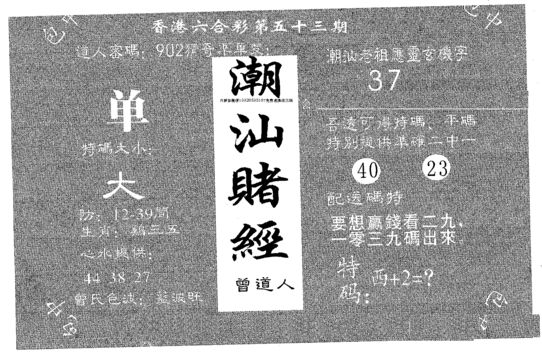 香港六合彩第五十三期
道人密碼：902猜哥準單莫：
单
特碼大小：
大
防：12-39間
生肖：鷄三五
心水提供：
44 38 27
曾氏色波：藍波旺
潮
汕
賭
經
曾道人
潮汕老祖應靈玄機字
37
吾遠可得特碼、平碼
特别提供準確二中一
40 23
配送碼特
要想贏錢看二九，
一零三九碼出來
特码：
西+2=?